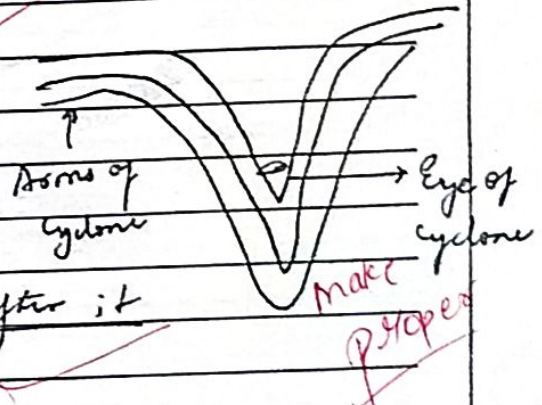 Arms of
Cyclone
Eye of
cyclone
after it
make
proper